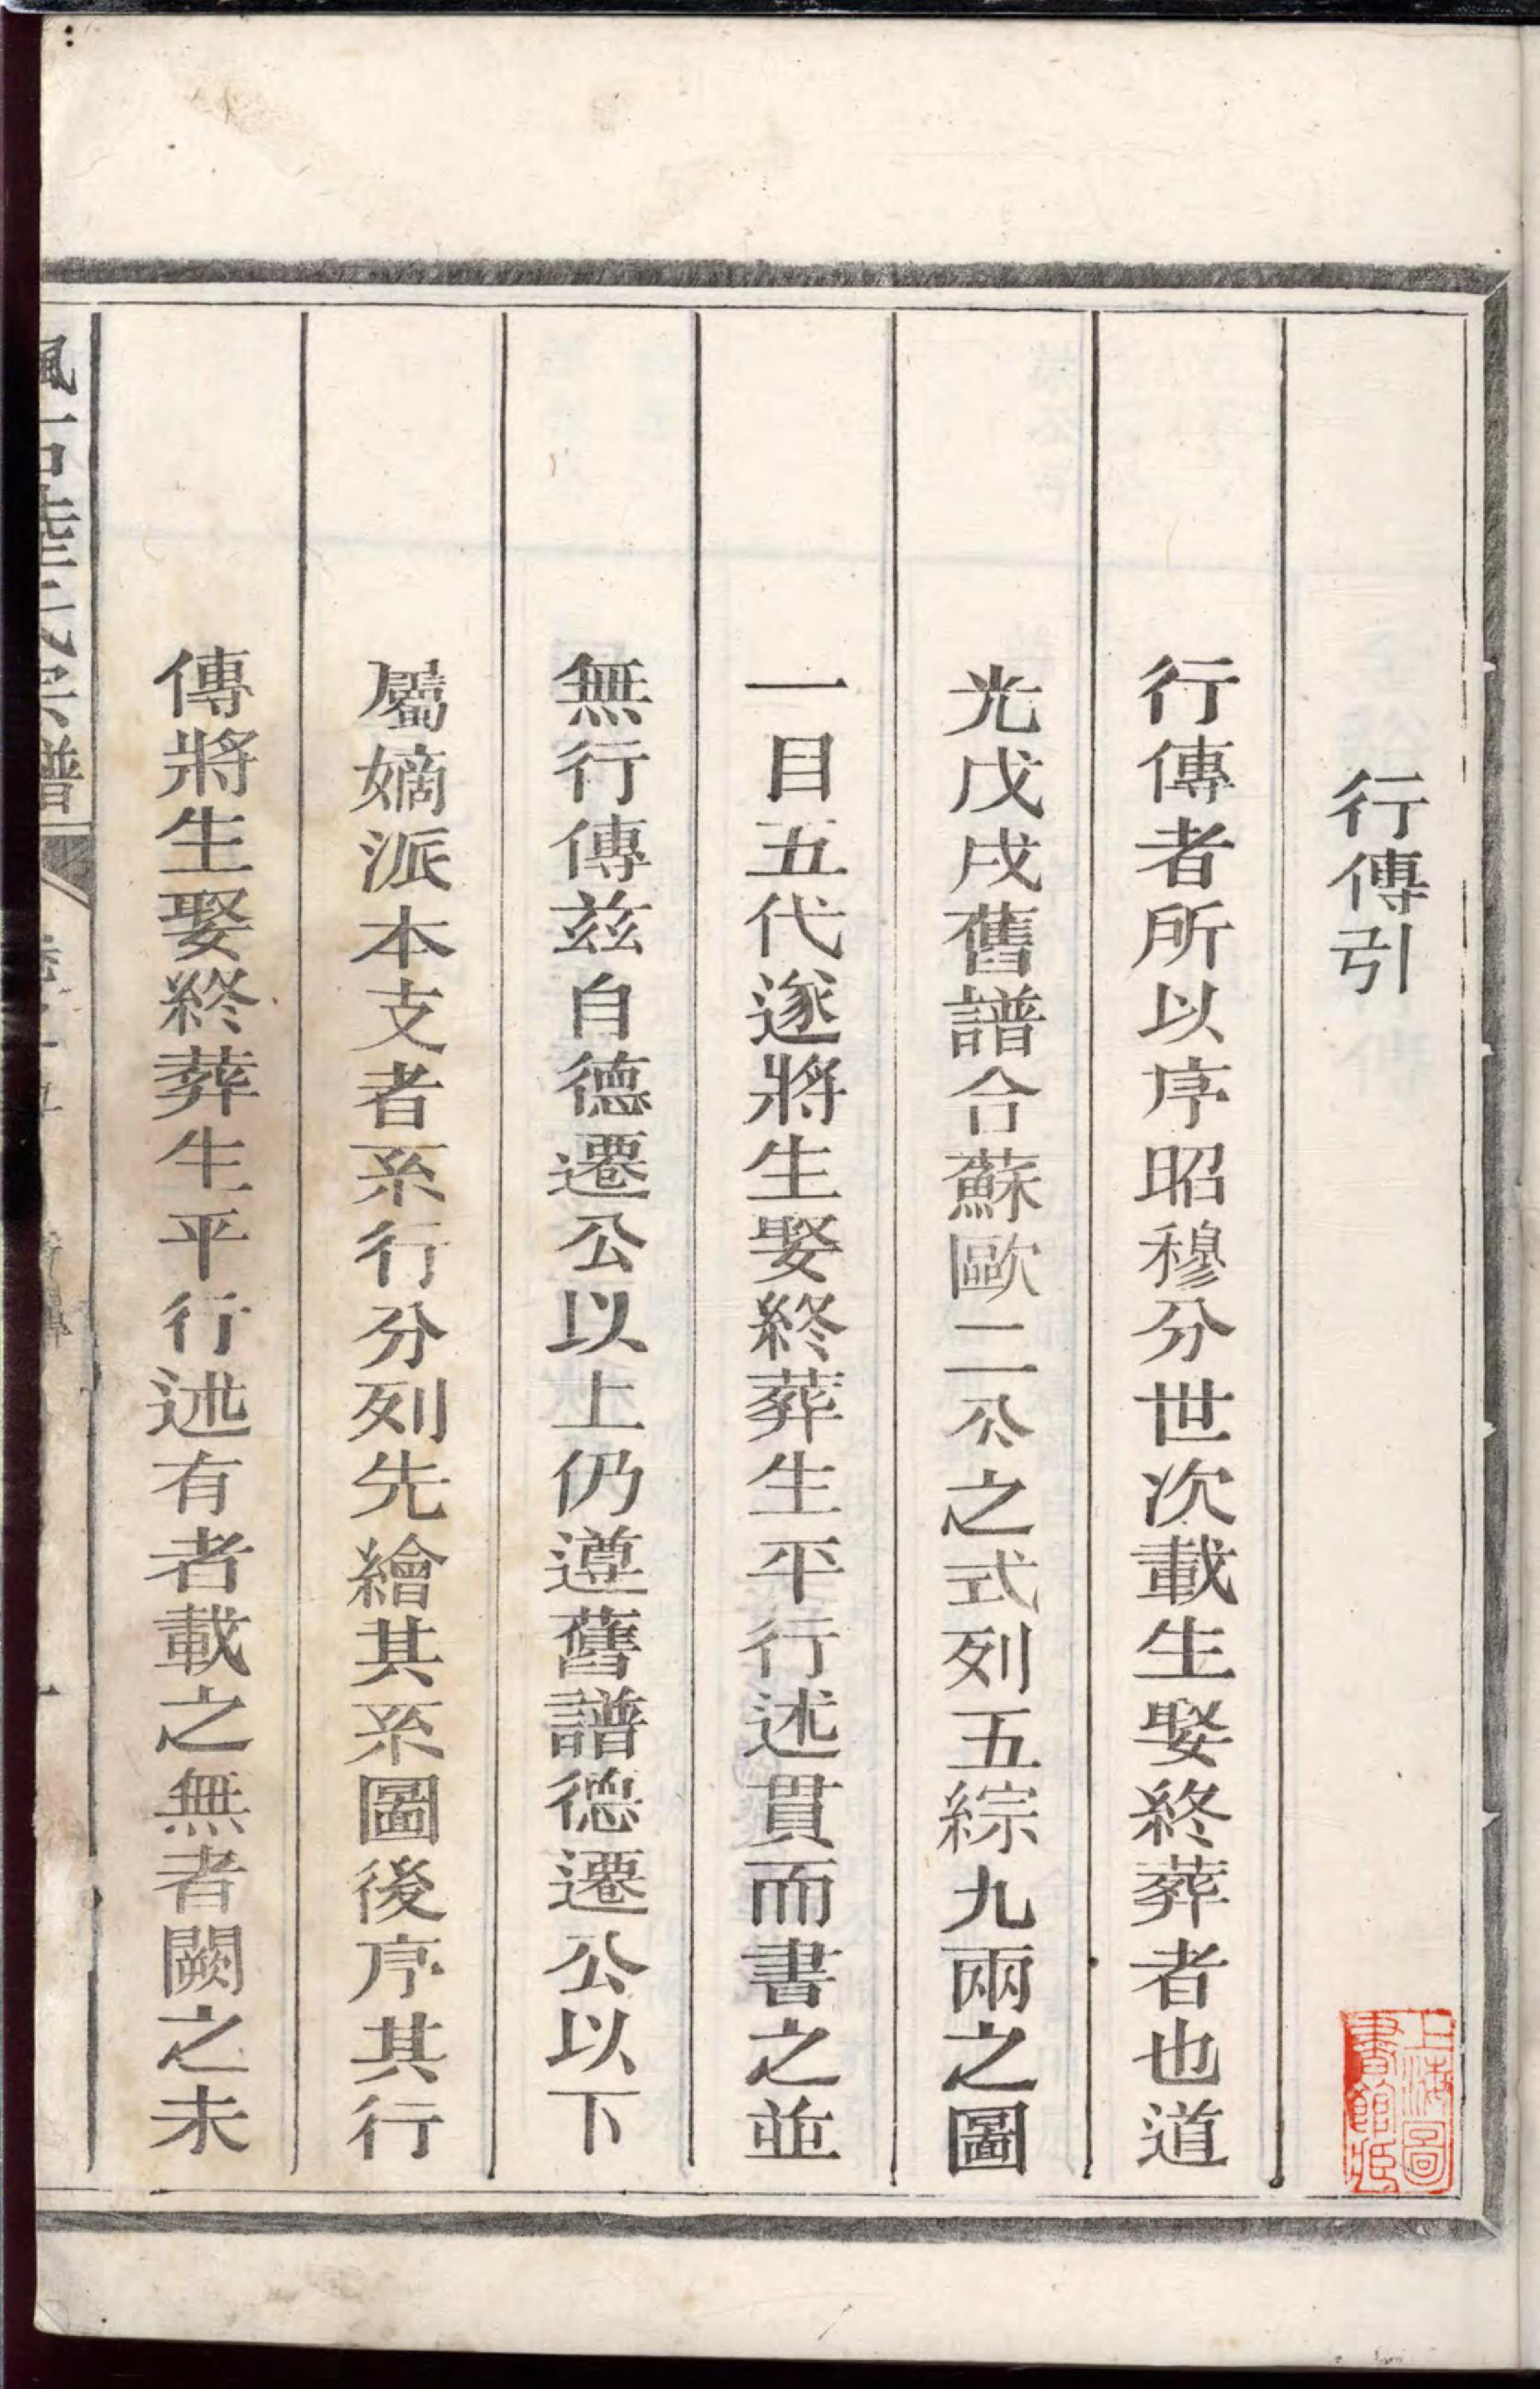 行傳引
行傳者所以序昭穆分世次載生娶終葬者也道
光戊戌舊譜合蘇歐二公之式列五綜九兩之圖
一目五代遂將生娶終葬生平行述貫而書之並
無行傳兹自德遷公以上仍遵舊譜德遷公以下
屬嫡派本支者系行分列先繪其系圖後序其行
傳將生娶終葬生平行述有者載之無者闕之未
陸氏宗譜
上海圖
書館藏